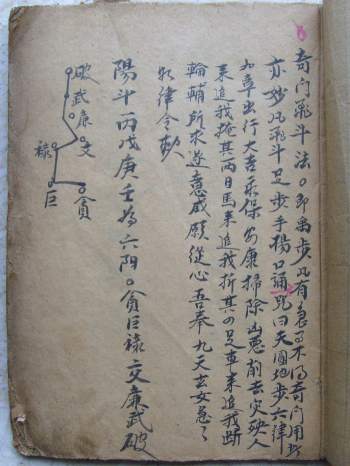 奇门飛斗法。即禹步凡有急了不及奇门用此
亦妙凡飛斗足步手揚口誦咒曰天圓地步六律
如章出行大吉永保安康掃除凶惡削去灾殃人
来追我掩其两目馬来追我折其四足車来追我断
輪輔所求遂意威願從心吾奉九天玄女急〻
如律令敕
陽斗丙戊庚壬為六阳。貪巨禄文廉武破
破武廉文
禄
巨
貪